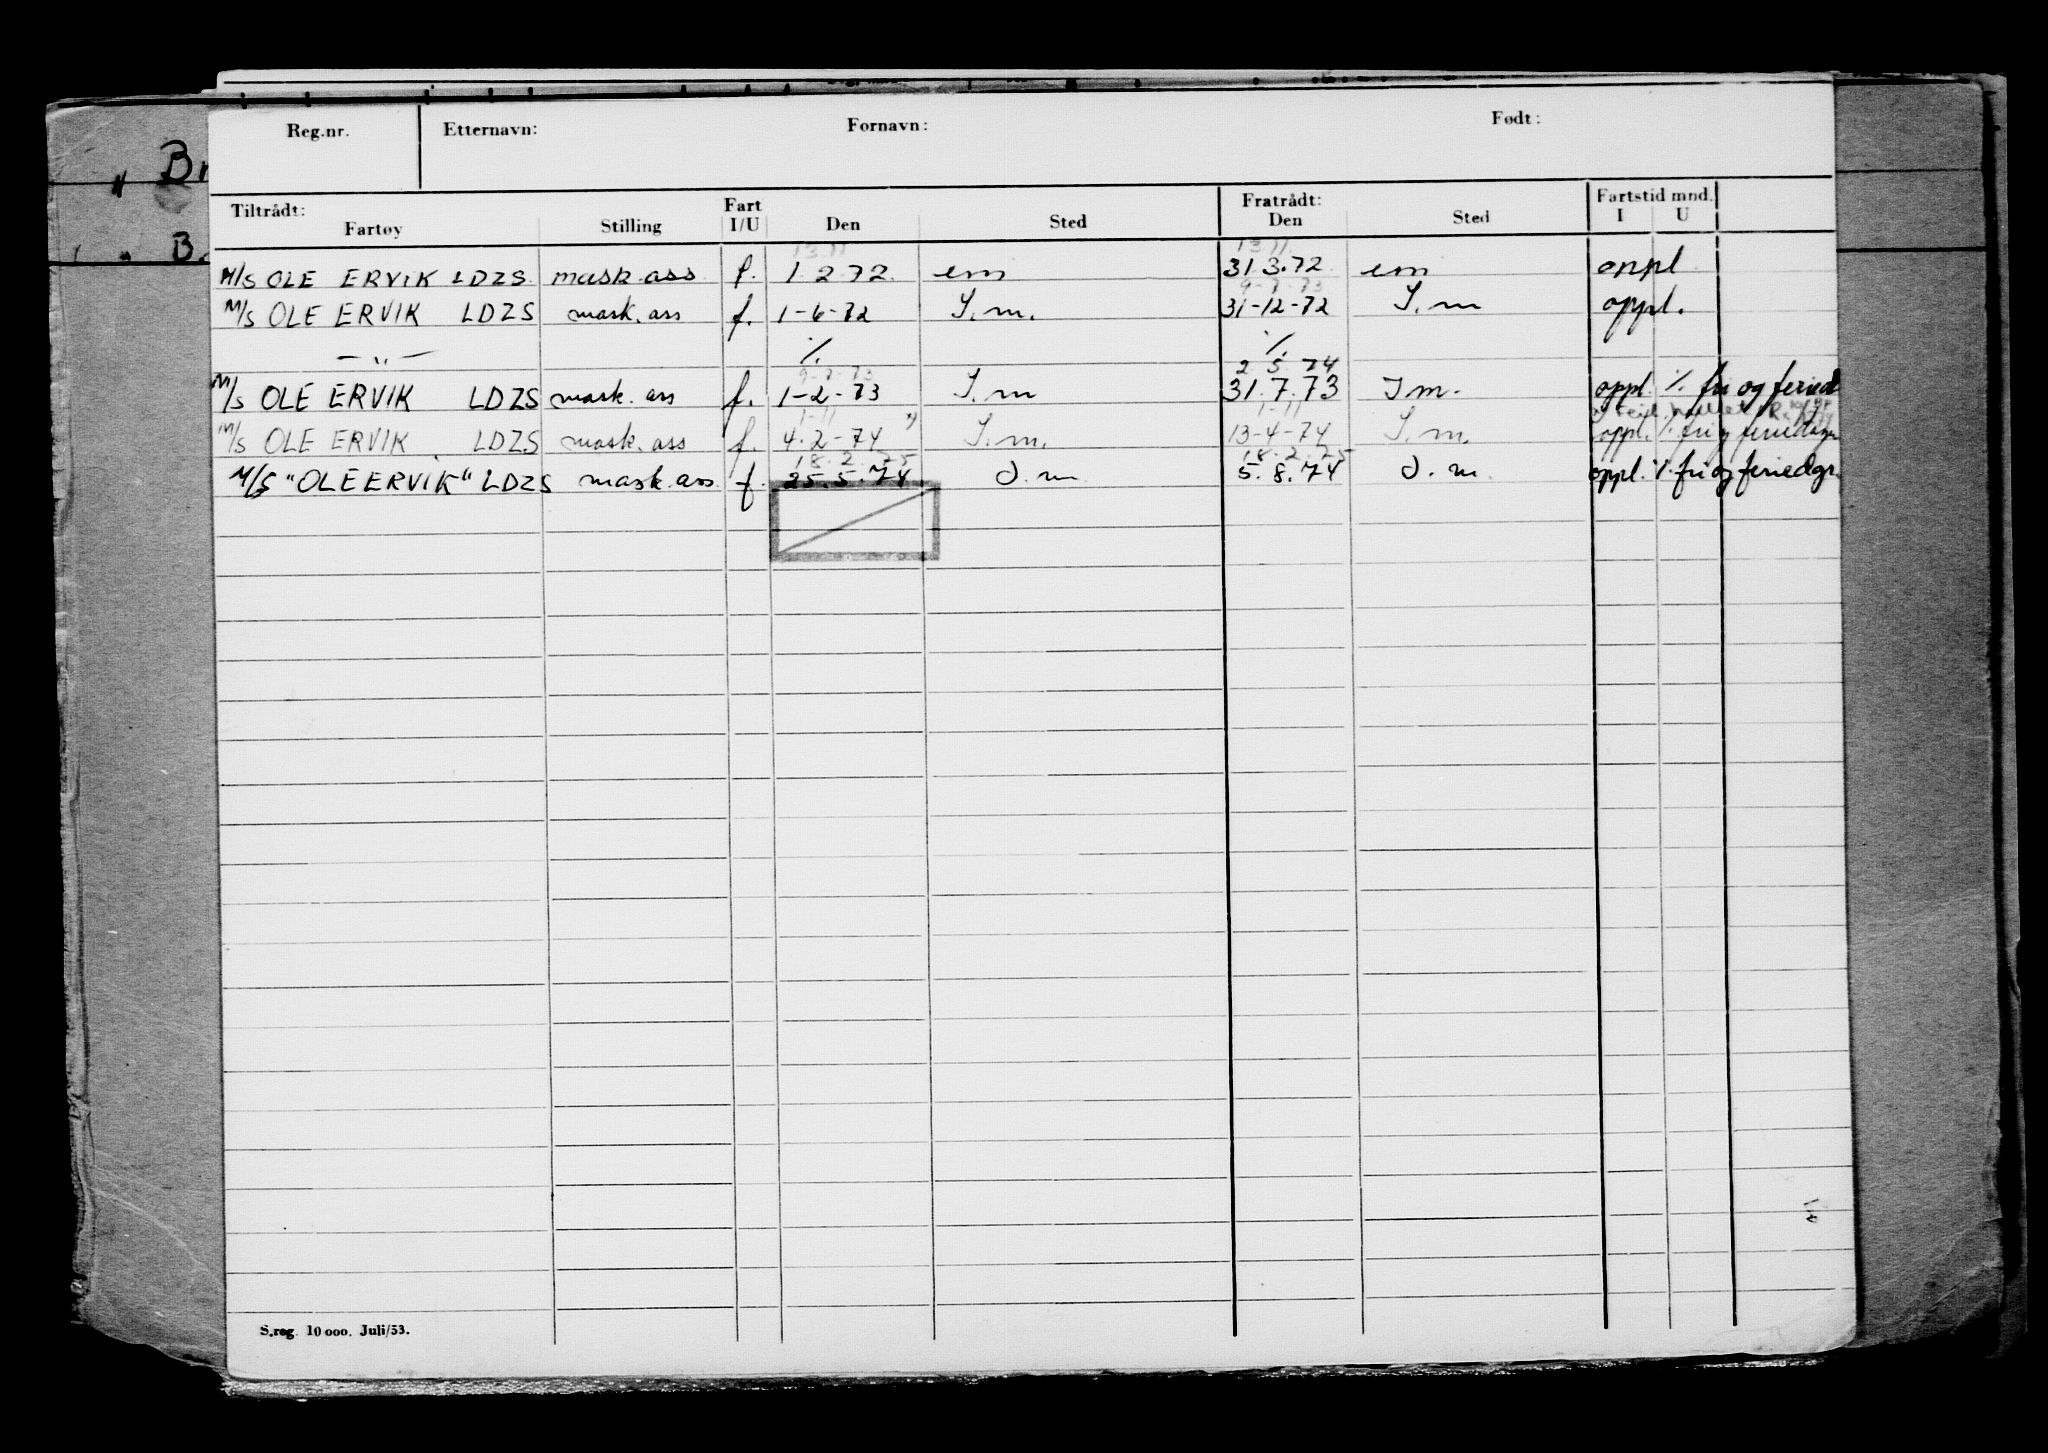 Reg.nr. Etternavn: Fornavn: Født:
" Br
Tiltrådt: Fratrådt: Fartstid mnd.
Fartøy Stilling Fart I/U Den Sted Den Sted I U
" B.
13.11 13.11.
M/S OLE ERVIK LDZS mask.ass f. 1.2.72. em 31.3.72 em oppl
9-7-73
M/S OLE ERVIK LDZS mask.ass f. 1-6-72 I.m. 31-12-72 I.m oppl.
— " — ·/. ·/.
9-7-73 2 5 74
M/S OLE ERVIK LDZS mask. ass f. 1-2-73 I.m 31.7.73 I m. oppl ·/. fri og feried
1-11 1-11
M/S OLE ERVIK LDZS mask. ass f. 4.2-74 I.m. 13-4-74 I.m. oppl. ·/. fri og feriedager
18.2.75 18.2.75
M/S "OLE ERVIK" LDZS mask.ass f 25.5.74 I.m 5.8.74 I.m. oppl. ·/. fri og feriedgr.
S.reg. 10 000. Juli/53.